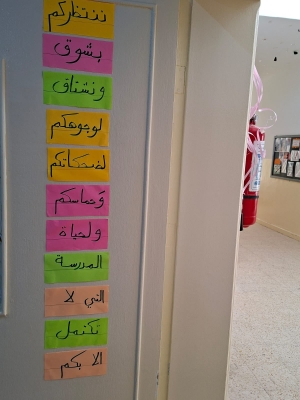 ننتظركم
بشوق
ونشتاق
لوجوهكم
لضحكاتكم
وحماسكم
ولحياة
المدرسة
التي لا
تكتمل
الا بكم